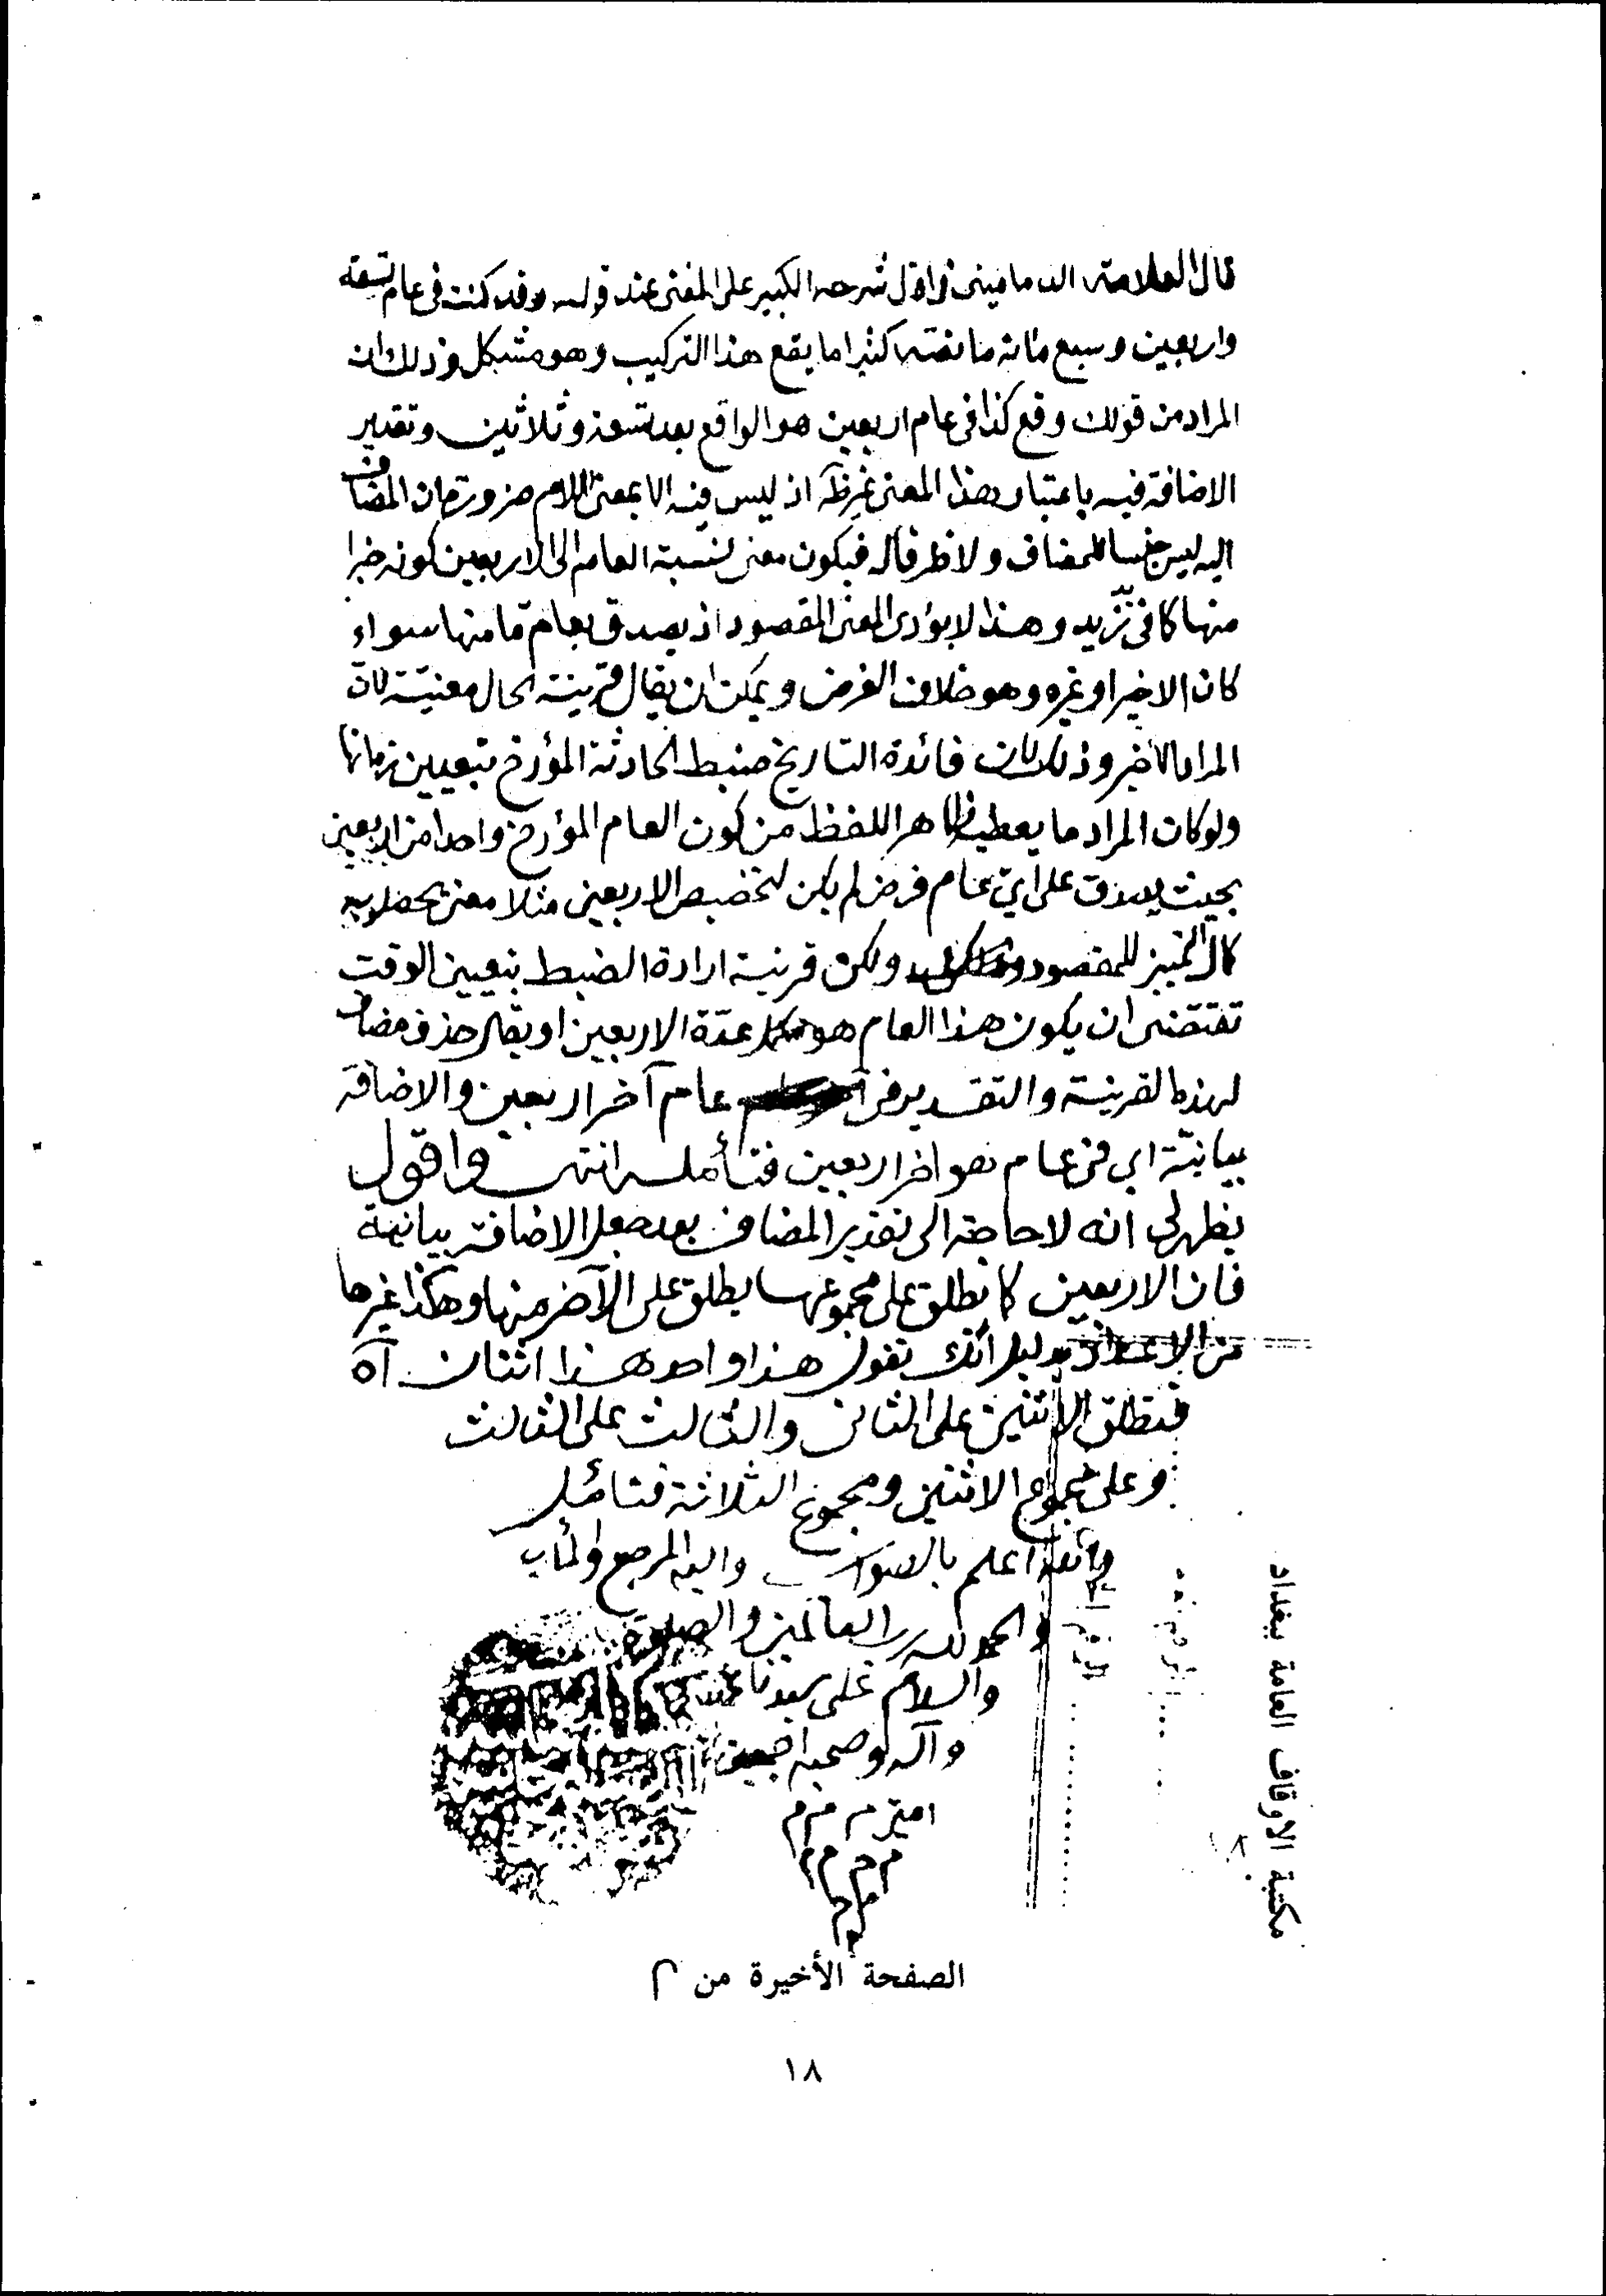 قال العلامة الدماميني في اول شرحه الكبير على المغني عند قوله وقد كنت في عام تسعة
واربعين وسبع مائة ما نصه كثيرا ما يقع هذا التركيب وهو مشكل وذلك ان
المراد من قولك وقع كذا في عام اربعين هو الواقع بعد تسعة وثلاثين وتقدير
الاضافة فيه باعتبار هذا المعنى غير ظ اذ ليس فيه الا بمعنى اللام ضرورة ان المضاف
اليه ليس جنسا للمضاف ولا ظرفا له فيكون معنى نسبة العام الى الاربعين كونه جزا
منها كما في يد زيد وهذا لا يؤدى المعنى المقصود اذ يصدق بعام ما منها سواء
كان الاخير او غيره وهو خلاف الغرض ويمكن ان يقال قرينة الحال معنية لان
المراد الاخير وذلك لان فائدة التاريخ ضبط الحادثة المؤرخ بتعيين زمانها
ولو كان المراد ما يعطيه ظاهر اللفظ من كون العام المؤرخ واحدا من اربعين
بحيث يصدق على اي عام فرض لم يكن لتخصيص الاربعين مثلا معنى يحصل به
كمال التميز للمقصود ولكن قرينة ارادة الضبط بتعيين الوقت
تقتضى ان يكون هذا العام هو مكمل عدة الاربعين او يقال حذف مضاف
لهذه القرينة والتقدير في عام آخر اربعين والاضافة
بيانية اي في عام هو اخر اربعين فتأمله انتهى واقول
يظهر لي انه لا حاجة الى تقدير المضاف بعد جعل الاضافة بيانية
فان الاربعين كما تطلق على مجموعها يطلق على الآخر منها وهكذا غيرها
من الاعداد بدليل انك تقول هذا واحد هذا اثنان آه
فتطلق الاثنين على الثاني والثالث على الثالث
وعلى مجموع الاثنين ومجموع الثلاثة فتأمل
والله اعلم بالصواب واليه المرجع والمأب
والحمد لله رب العالمين والصلوة
والسلام على سيدنا محمد
وآله وصحبه اجمعين
امين م م م
م م م م
م م
م
مكتبة الاوقاف العامة ببغداد
الصفحة الأخيرة من م
١٨